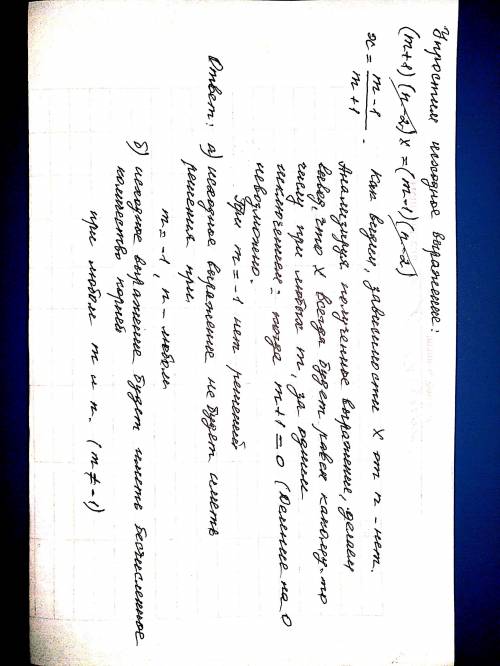 Упростим исходное выражение:
(m+1)(n-2)x = (m-1)(n-2)
x = m-1 / m+1 . Как видим, зависимости x от n - нет.
Анализируя полученные выражение, делаем
вывод, что X всегда будет равен какому-то
числу при любых m, за одним
исключением: когда m+1=0 (Деление на 0
невозможно.
При m=-1 нет решений
Ответ: а) исходное выражение не будет иметь
решения при
m=-1, n - любом
б) исходное выражение будет иметь бесчисленное
количество корней
при любом m и n. (m≠-1)